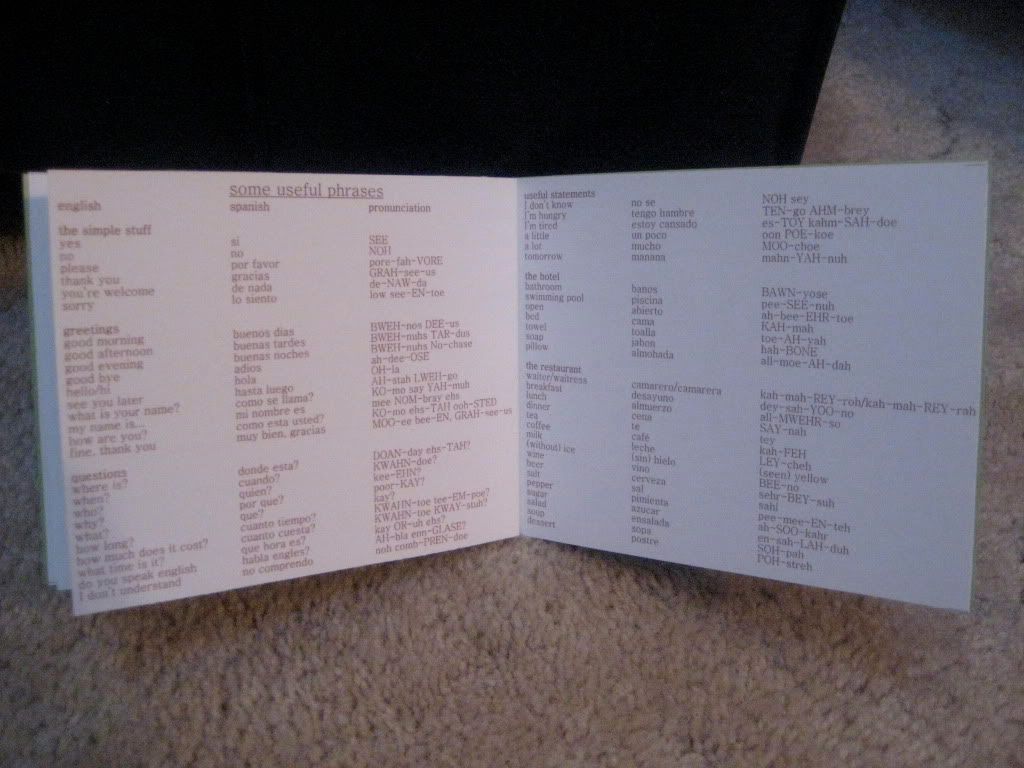 some useful phrases
english spanish pronunciation
the simple stuff
yes si SEE
no no NOH
please por favor pore-fah-VORE
thank you gracias GRAH-see-us
you're welcome de nada de-NAW-da
sorry lo siento low see-EN-toe
greetings
good morning buenos dias BWEH-nos DEE-us
good afternoon buenas tardes BWEH-nuhs TAR-dus
good evening buenas noches BWEH-nuhs No-chase
good bye adios ah-dee-OSE
hello/hi hola OH-la
see you later hasta luego AH-stah LWEH-go
what is your name? como se llama? KO-mo say YAH-muh
my name is... mi nombre es mee NOM-bray ehs
how are you? como esta usted? KO-mo ehs-TAH ooh-STED
fine, thank you muy bien, gracias MOO-ee bee-EN, GRAH-see-us
questions
where is? donde esta? DOAN-day ehs-TAH?
when? cuando? KWAHN-doe?
who? quien? kee-EHN?
why? por que? poor-KAY?
what? que? kay?
how long? cuanto tiempo? KWAHN-toe tee-EM-poe?
how much does it cost? cuanto cuesta? KWAHN-toe KWAY-stuh?
what time is it? que hora es? kay OR-uh ehs?
do you speak english habla engles? AH-bla enn-GLASE?
I don't understand no comprendo noh comb-PREN-doe
useful statements
I don't know no se NOH sey
I'm hungry tengo hambre TEN-go AHM-brey
I'm tired estoy cansado es-TOY kahm-SAH-doe
a little un poco oon POE-koe
a lot mucho MOO-choe
tomorrow manana mahn-YAH-nuh
the hotel
bathroom banos BAWN-yose
swimming pool piscina pee-SEE-nuh
open abierto ah-bee-EHR-toe
bed cama KAH-mah
towel toalla toe-AH-yah
soap jabon hah-BONE
pillow almohada all-moe-AH-dah
the restaurant
waiter/waitress camarero/camarera kah-mah-REY-roh/kah-mah-REY-rah
breakfast desayuno dey-sah-YOO-no
lunch almuerzo all-MWEHR-so
dinner cena SAY-nah
tea te tey
coffee café kah-FEH
milk leche LEY-cheh
(without) ice (sin) hielo (seen) yellow
wine vino BEE-no
beer cerveza sehr-BEY-suh
salt sal sahl
pepper pimienta pee-mee-EN-teh
sugar azucar ah-SOO-kahr
salad ensalada en-sah-LAH-duh
soup sopa SOH-pah
dessert postre POH-streh